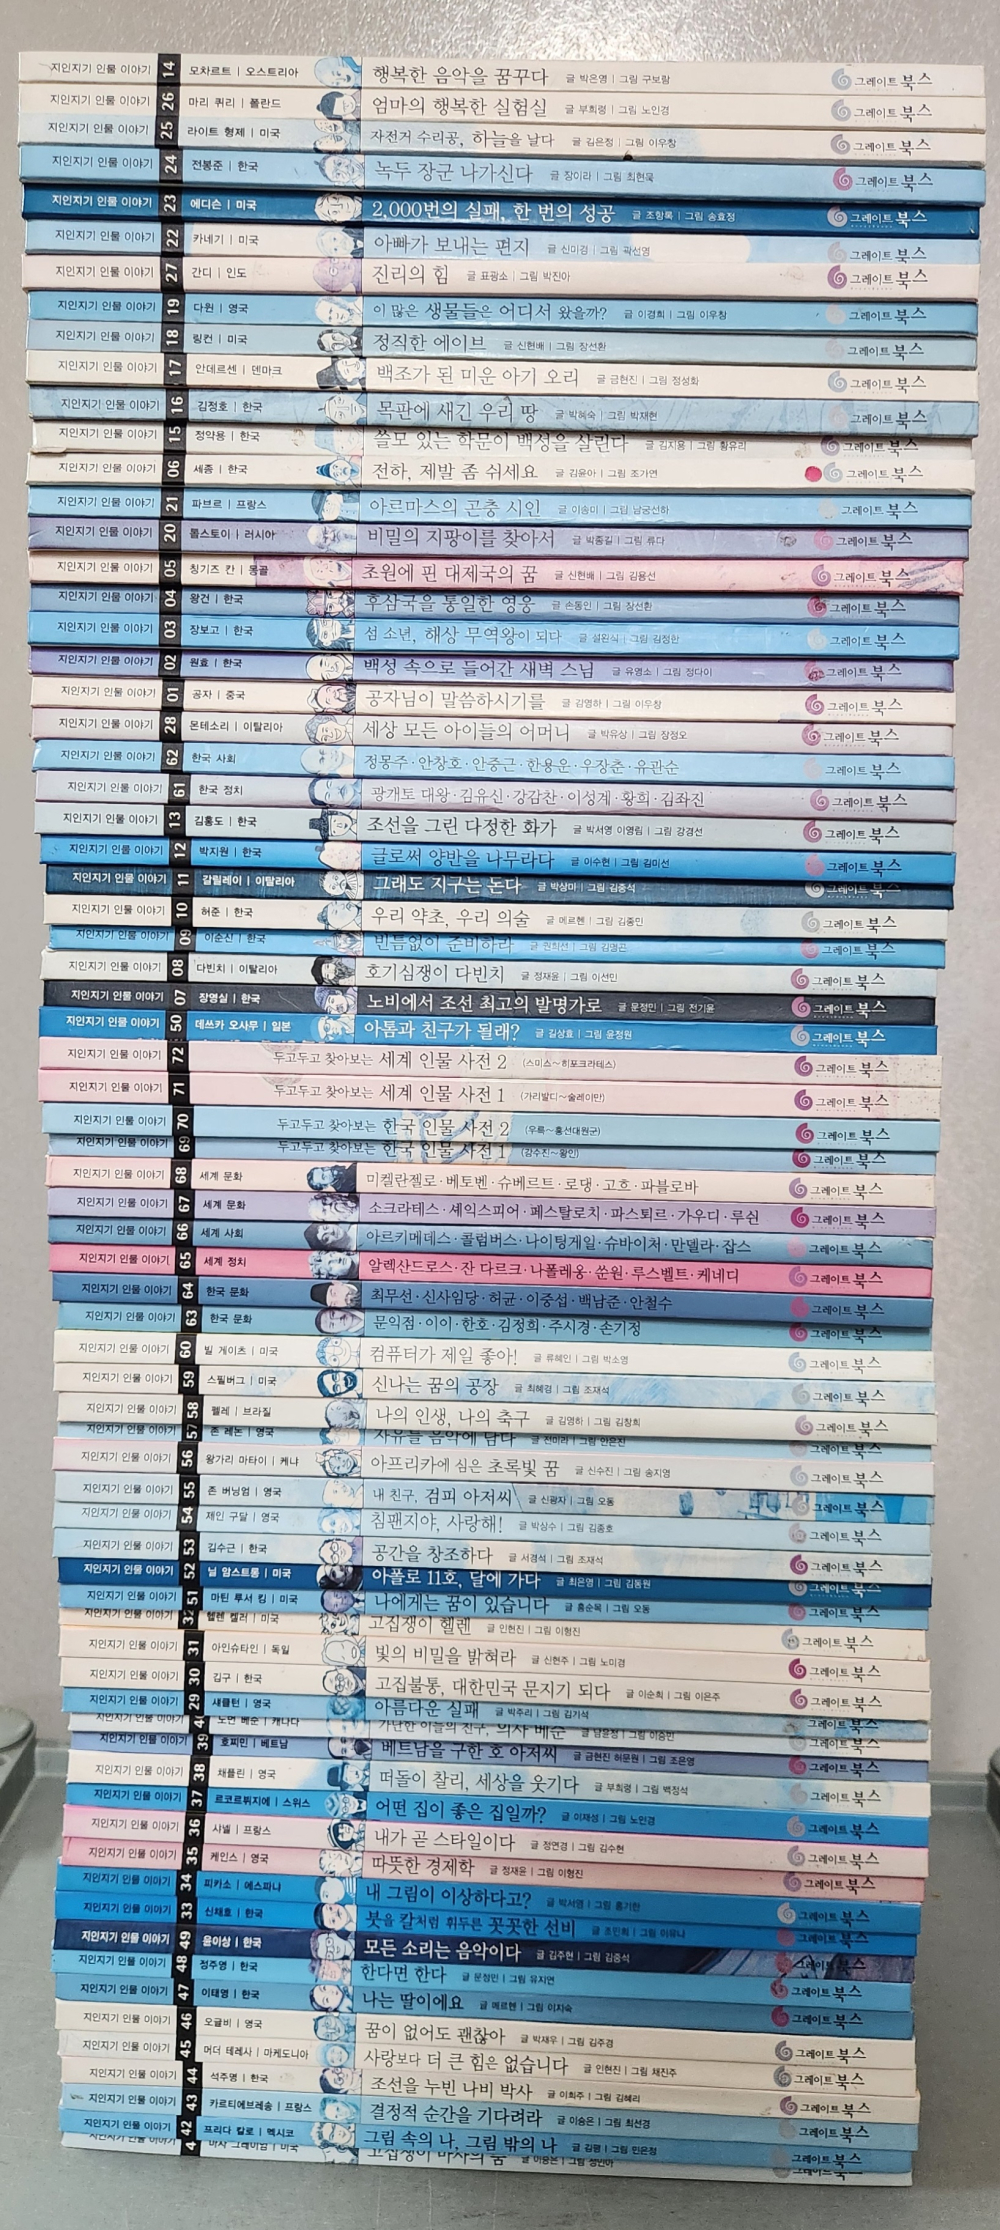 지인지기 인물 이야기 14 모차르트 | 오스트리아 행복한 음악을 꿈꾸다 글 박은영 | 그림 구보람 그레이트 북스
지인지기 인물 이야기 26 마리 퀴리 | 폴란드 엄마의 행복한 실험실 글 부희령 | 그림 노인경 그레이트 북스
지인지기 인물 이야기 25 라이트 형제 | 미국 자전거 수리공, 하늘을 날다 글 김은정 | 그림 이우창 그레이트 북스
지인지기 인물 이야기 24 전봉준 | 한국 녹두 장군 나가신다 글 장이라 | 그림 최현묵 그레이트 북스
지인지기 인물 이야기 23 에디슨 | 미국 2,000번의 실패, 한 번의 성공 글 조항록 | 그림 송효정 그레이트 북스
지인지기 인물 이야기 22 카네기 | 미국 아빠가 보내는 편지 글 신미경 | 그림 곽선영 그레이트 북스
지인지기 인물 이야기 27 간디 | 인도 진리의 힘 글 표광소 | 그림 박진아 그레이트 북스
지인지기 인물 이야기 19 다윈 | 영국 이 많은 생물들은 어디서 왔을까? 글 이경희 | 그림 이우창 그레이트 북스
지인지기 인물 이야기 18 링컨 | 미국 정직한 에이브 글 신현배 | 그림 장선환 그레이트 북스
지인지기 인물 이야기 17 안데르센 | 덴마크 백조가 된 미운 아기 오리 글 금현진 | 그림 정성화 그레이트 북스
지인지기 인물 이야기 16 김정호 | 한국 목판에 새긴 우리 땅 글 박혜숙 | 그림 박재현 그레이트 북스
지인지기 인물 이야기 15 정약용 | 한국 쓸모 있는 학문이 백성을 살린다 글 김지용 | 그림 황유리 그레이트 북스
지인지기 인물 이야기 06 세종 | 한국 전하, 제발 좀 쉬세요 글 김윤아 | 그림 조가연 그레이트 북스
지인지기 인물 이야기 21 파브르 | 프랑스 아르마스의 곤충 시인 글 이송미 | 그림 남궁선하 그레이트 북스
지인지기 인물 이야기 20 톨스토이 | 러시아 비밀의 지팡이를 찾아서 글 박종길 | 그림 류다 그레이트 북스
지인지기 인물 이야기 05 칭기즈 칸 | 몽골 초원에 핀 대제국의 꿈 글 신현배 | 그림 김용선 그레이트 북스
지인지기 인물 이야기 04 왕건 | 한국 후삼국을 통일한 영웅 글 손동인 | 그림 장선환 그레이트 북스
지인지기 인물 이야기 03 장보고 | 한국 섬 소년, 해상 무역왕이 되다 글 설완식 | 그림 김정한 그레이트 북스
지인지기 인물 이야기 02 원효 | 한국 백성 속으로 들어간 새벽 스님 글 유영소 | 그림 정다이 그레이트 북스
지인지기 인물 이야기 01 공자 | 중국 공자님이 말씀하시기를 글 김영하 | 그림 이우창 그레이트 북스
지인지기 인물 이야기 28 몬테소리 | 이탈리아 세상 모든 아이들의 어머니 글 박유상 | 그림 장정오 그레이트 북스
지인지기 인물 이야기 62 한국 사회 정몽주·안창호·안중근·한용운·우장춘·유관순 그레이트 북스
지인지기 인물 이야기 61 한국 정치 광개토 대왕·김유신·강감찬·이성계·황희·김좌진 그레이트 북스
지인지기 인물 이야기 13 김홍도 | 한국 조선을 그린 다정한 화가 글 박서영 이영림 | 그림 강경선 그레이트 북스
지인지기 인물 이야기 12 박지원 | 한국 글로써 양반을 나무라다 글 이수현 | 그림 김미선 그레이트 북스
지인지기 인물 이야기 11 갈릴레이 | 이탈리아 그래도 지구는 돈다 글 박상미 | 그림 김중석 그레이트 북스
지인지기 인물 이야기 10 허준 | 한국 우리 약초, 우리 의술 글 메르헨 | 그림 김종민 그레이트 북스
지인지기 인물 이야기 09 이순신 | 한국 빈틈없이 준비하라 글 원희선 | 그림 김명곤 그레이트 북스
지인지기 인물 이야기 08 다빈치 | 이탈리아 호기심쟁이 다빈치 글 정재윤 | 그림 이선민 그레이트 북스
지인지기 인물 이야기 07 장영실 | 한국 노비에서 조선 최고의 발명가로 글 문정민 | 그림 전기윤 그레이트 북스
지인지기 인물 이야기 50 데쓰카 오사무 | 일본 아톰과 친구가 될래? 글 길상효 | 그림 윤정원 그레이트 북스
지인지기 인물 이야기 72 두고두고 찾아보는 세계 인물 사전 2 (스미스~히포크라테스) 그레이트 북스
지인지기 인물 이야기 71 두고두고 찾아보는 세계 인물 사전 1 (가리발디~술레이만) 그레이트 북스
지인지기 인물 이야기 70 두고두고 찾아보는 한국 인물 사전 2 (우륵~흥선대원군) 그레이트 북스
지인지기 인물 이야기 69 두고두고 찾아보는 한국 인물 사전 1 (강수진~왕인) 그레이트 북스
지인지기 인물 이야기 68 세계 문화 미켈란젤로·베토벤·슈베르트·로댕·고흐·파블로바 그레이트 북스
지인지기 인물 이야기 67 세계 문화 소크라테스·셰익스피어·페스탈로치·파스퇴르·가우디·루쉰 그레이트 북스
지인지기 인물 이야기 66 세계 사회 아르키메데스·콜럼버스·나이팅게일·슈바이처·만델라·잡스 그레이트 북스
지인지기 인물 이야기 65 세계 정치 알렉산드로스·잔 다르크·나폴레옹·쑨원·루스벨트·케네디 그레이트 북스
지인지기 인물 이야기 64 한국 문화 최무선·신사임당·허균·이중섭·백남준·안철수 그레이트 북스
지인지기 인물 이야기 63 한국 문화 문익점·이이·한호·김정희·주시경·손기정 그레이트 북스
지인지기 인물 이야기 60 빌 게이츠 | 미국 컴퓨터가 제일 좋아! 글 류혜인 | 그림 박소영 그레이트 북스
지인지기 인물 이야기 59 스필버그 | 미국 신나는 꿈의 공장 글 최혜경 | 그림 조재석 그레이트 북스
지인지기 인물 이야기 58 펠레 | 브라질 나의 인생, 나의 축구 글 김영하 | 그림 김창희 그레이트 북스
지인지기 인물 이야기 57 존 레논 | 영국 자유를 음악에 담다 글 전미라 | 그림 안은진 그레이트 북스
지인지기 인물 이야기 56 왕가리 마타이 | 케냐 아프리카에 심은 초록빛 꿈 글 신수진 | 그림 송지영 그레이트 북스
지인지기 인물 이야기 55 존 버닝엄 | 영국 내 친구, 검피 아저씨 글 신광자 | 그림 오동 그레이트 북스
지인지기 인물 이야기 54 제인 구달 | 영국 침팬지야, 사랑해! 글 박상수 | 그림 김종호 그레이트 북스
지인지기 인물 이야기 53 김수근 | 한국 공간을 창조하다 글 서경석 | 그림 조재석 그레이트 북스
지인지기 인물 이야기 52 닐 암스트롱 | 미국 아폴로 11호, 달에 가다 글 최은영 | 그림 김동원 그레이트 북스
지인지기 인물 이야기 51 마틴 루서 킹 | 미국 나에게는 꿈이 있습니다 글 홍순목 | 그림 오동 그레이트 북스
지인지기 인물 이야기 32 헬렌 켈러 | 미국 고집쟁이 헬렌 글 인현진 | 그림 이형진
지인지기 인물 이야기 31 아인슈타인 | 독일 빛의 비밀을 밝혀라 글 신현주 | 그림 노미경 그레이트 북스
지인지기 인물 이야기 30 김구 | 한국 고집불통, 대한민국 문지기 되다 글 이순희 | 그림 이은주 그레이트 북스
지인지기 인물 이야기 29 섀클턴 | 영국 아름다운 실패 글 박주리 | 그림 김기석 그레이트 북스
지인지기 인물 이야기 40 노먼 베순 | 캐나다 가난한 이들의 친구, 의사 베순 글 남윤정 | 그림 이승민 그레이트 북스
지인지기 인물 이야기 39 호찌민 | 베트남 베트남을 구한 호 아저씨 글 금현진 허문원 | 그림 조은영 그레이트 북스
지인지기 인물 이야기 38 채플린 | 영국 떠돌이 찰리, 세상을 웃기다 글 부희령 | 그림 백정석 그레이트 북스
지인지기 인물 이야기 37 르코르뷔지에 | 스위스 어떤 집이 좋은 집일까? 글 이재성 | 그림 노인경 그레이트 북스
지인지기 인물 이야기 36 샤넬 | 프랑스 내가 곧 스타일이다 글 정연경 | 그림 김수현 그레이트 북스
지인지기 인물 이야기 35 케인스 | 영국 따뜻한 경제학 글 정재윤 | 그림 이형진 그레이트 북스
지인지기 인물 이야기 34 피카소 | 에스파냐 내 그림이 이상하다고? 글 박서영 | 그림 홍기한 그레이트 북스
지인지기 인물 이야기 33 신채호 | 한국 붓을 칼처럼 휘두른 꼿꼿한 선비 글 조민희 | 그림 이유나 그레이트 북스
지인지기 인물 이야기 49 윤이상 | 한국 모든 소리는 음악이다 글 김주현 | 그림 김중석 그레이트 북스
지인지기 인물 이야기 48 정주영 | 한국 한다면 한다 글 문정민 | 그림 유지연 그레이트 북스
지인지기 인물 이야기 47 이태영 | 한국 나는 딸이에요 글 메르헨 | 그림 이지숙 그레이트 북스
지인지기 인물 이야기 46 오글비 | 영국 꿈이 없어도 괜찮아 글 박재우 | 그림 김주경 그레이트 북스
지인지기 인물 이야기 45 머더 테레사 | 마케도니아 사랑보다 더 큰 힘은 없습니다 글 인현진 | 그림 채진주 그레이트 북스
지인지기 인물 이야기 44 석주명 | 한국 조선을 누빈 나비 박사 글 이희주 | 그림 김혜리 그레이트 북스
지인지기 인물 이야기 43 카르티에브레송 | 프랑스 결정적 순간을 기다려라 글 이승은 | 그림 최선경 그레이트 북스
지인지기 인물 이야기 42 프리다 칼로 | 멕시코 그림 속의 나, 그림 밖의 나 글 김평 | 그림 민은정 그레이트 북스
지인지기 인물 이야기 4 마사 그레이엄 | 미국 고집쟁이 마사의 꿈 그레이트 북스